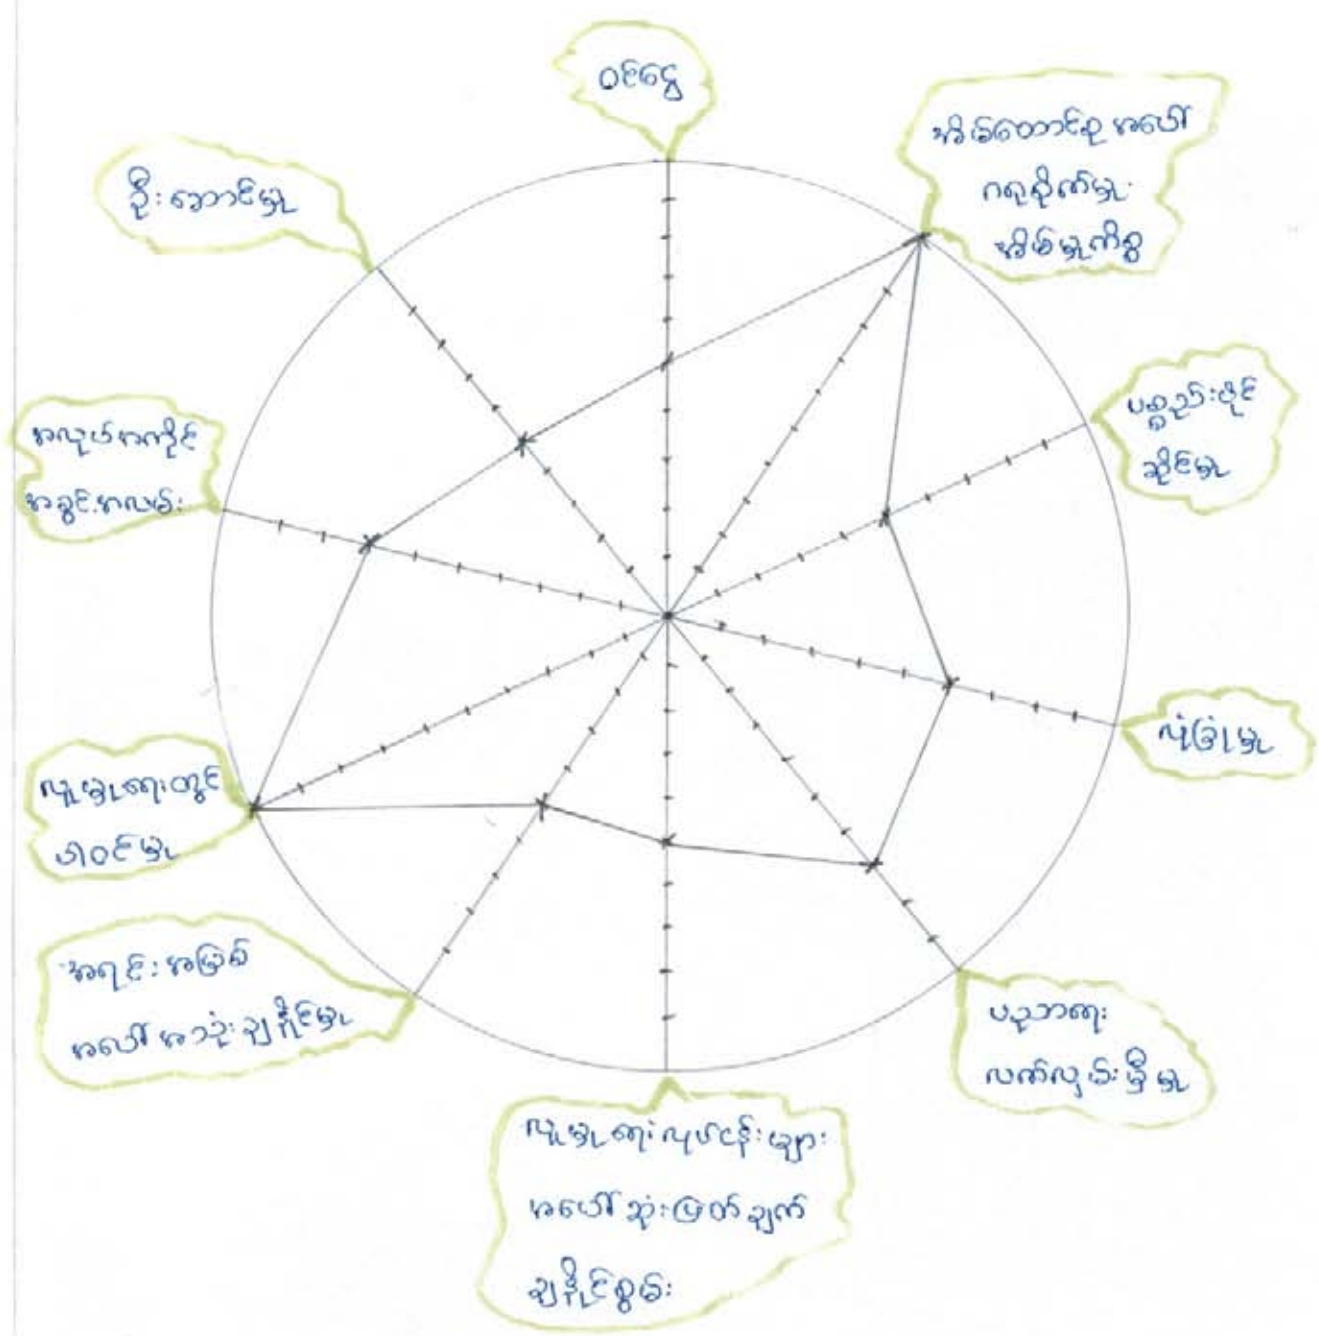 ဝင်ငွေ
အိမ်ထောင်စု အပေါ်
ဂရုစိုက်မှု
အိမ်မှုကိစ္စ
ပစ္စည်းပိုင်
ဆိုင်မှု
လုံခြုံမှု
ပညာရေး
လက်လှမ်းမှီမှု
လူမှုရေး လုပ်ငန်းများ
အပေါ် ဆုံးဖြတ်ချက်
ချနိုင်စွမ်း
အရင်းအမြစ်
အပေါ် အသုံးချနိုင်မှု
လူမှုရေးတွင်
ပါဝင်မှု
အလုပ်အကိုင်
အခွင့်အလမ်း
ဦးဆောင်မှု